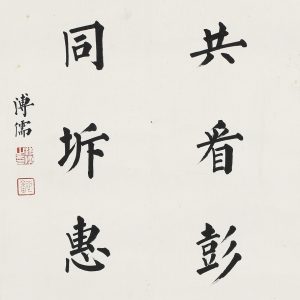 共看彭
同坼惠
溥儒